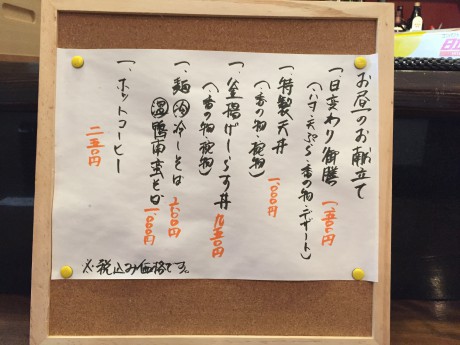 お昼のお献立て
一、日変わり御膳 一、五〇〇円
(小サ・天ぷら・香の物・デザート)
一、特製天丼 一、〇〇〇円
(香の物・椀物)
一、釜揚げしらす丼 八五〇円
(香の物・椀物)
一、麺 冷 冷しそば 八〇〇円
温 鴨南蛮そば 一、〇〇〇円
一、ホットコーヒー 二五〇円
※税込み価格です。